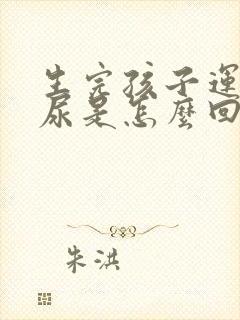 生完孩子運
尿是怎麼回
朱洪